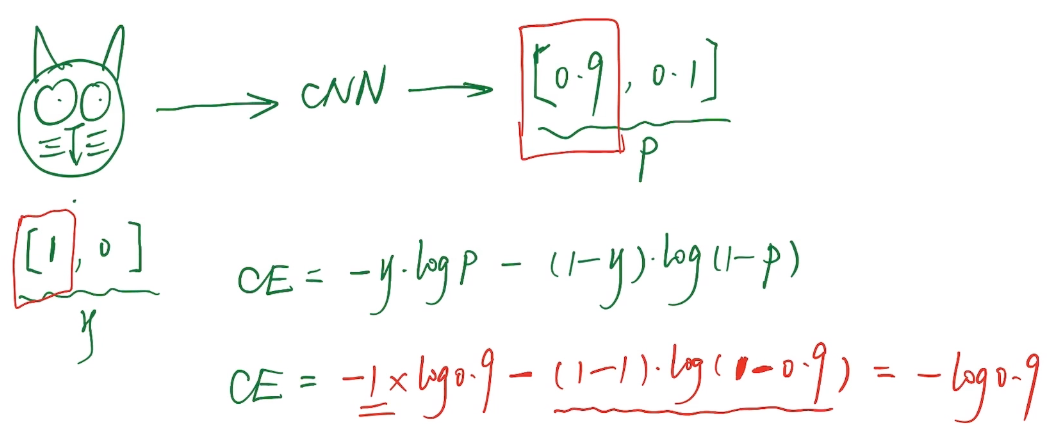 CNN
[0.9, 0.1]
p
[1, 0]
y
CE = -y·log p - (1-y)·log(1-p)
CE = -1×log0.9 - (1-1)·log(1-0.9) = -log0.9